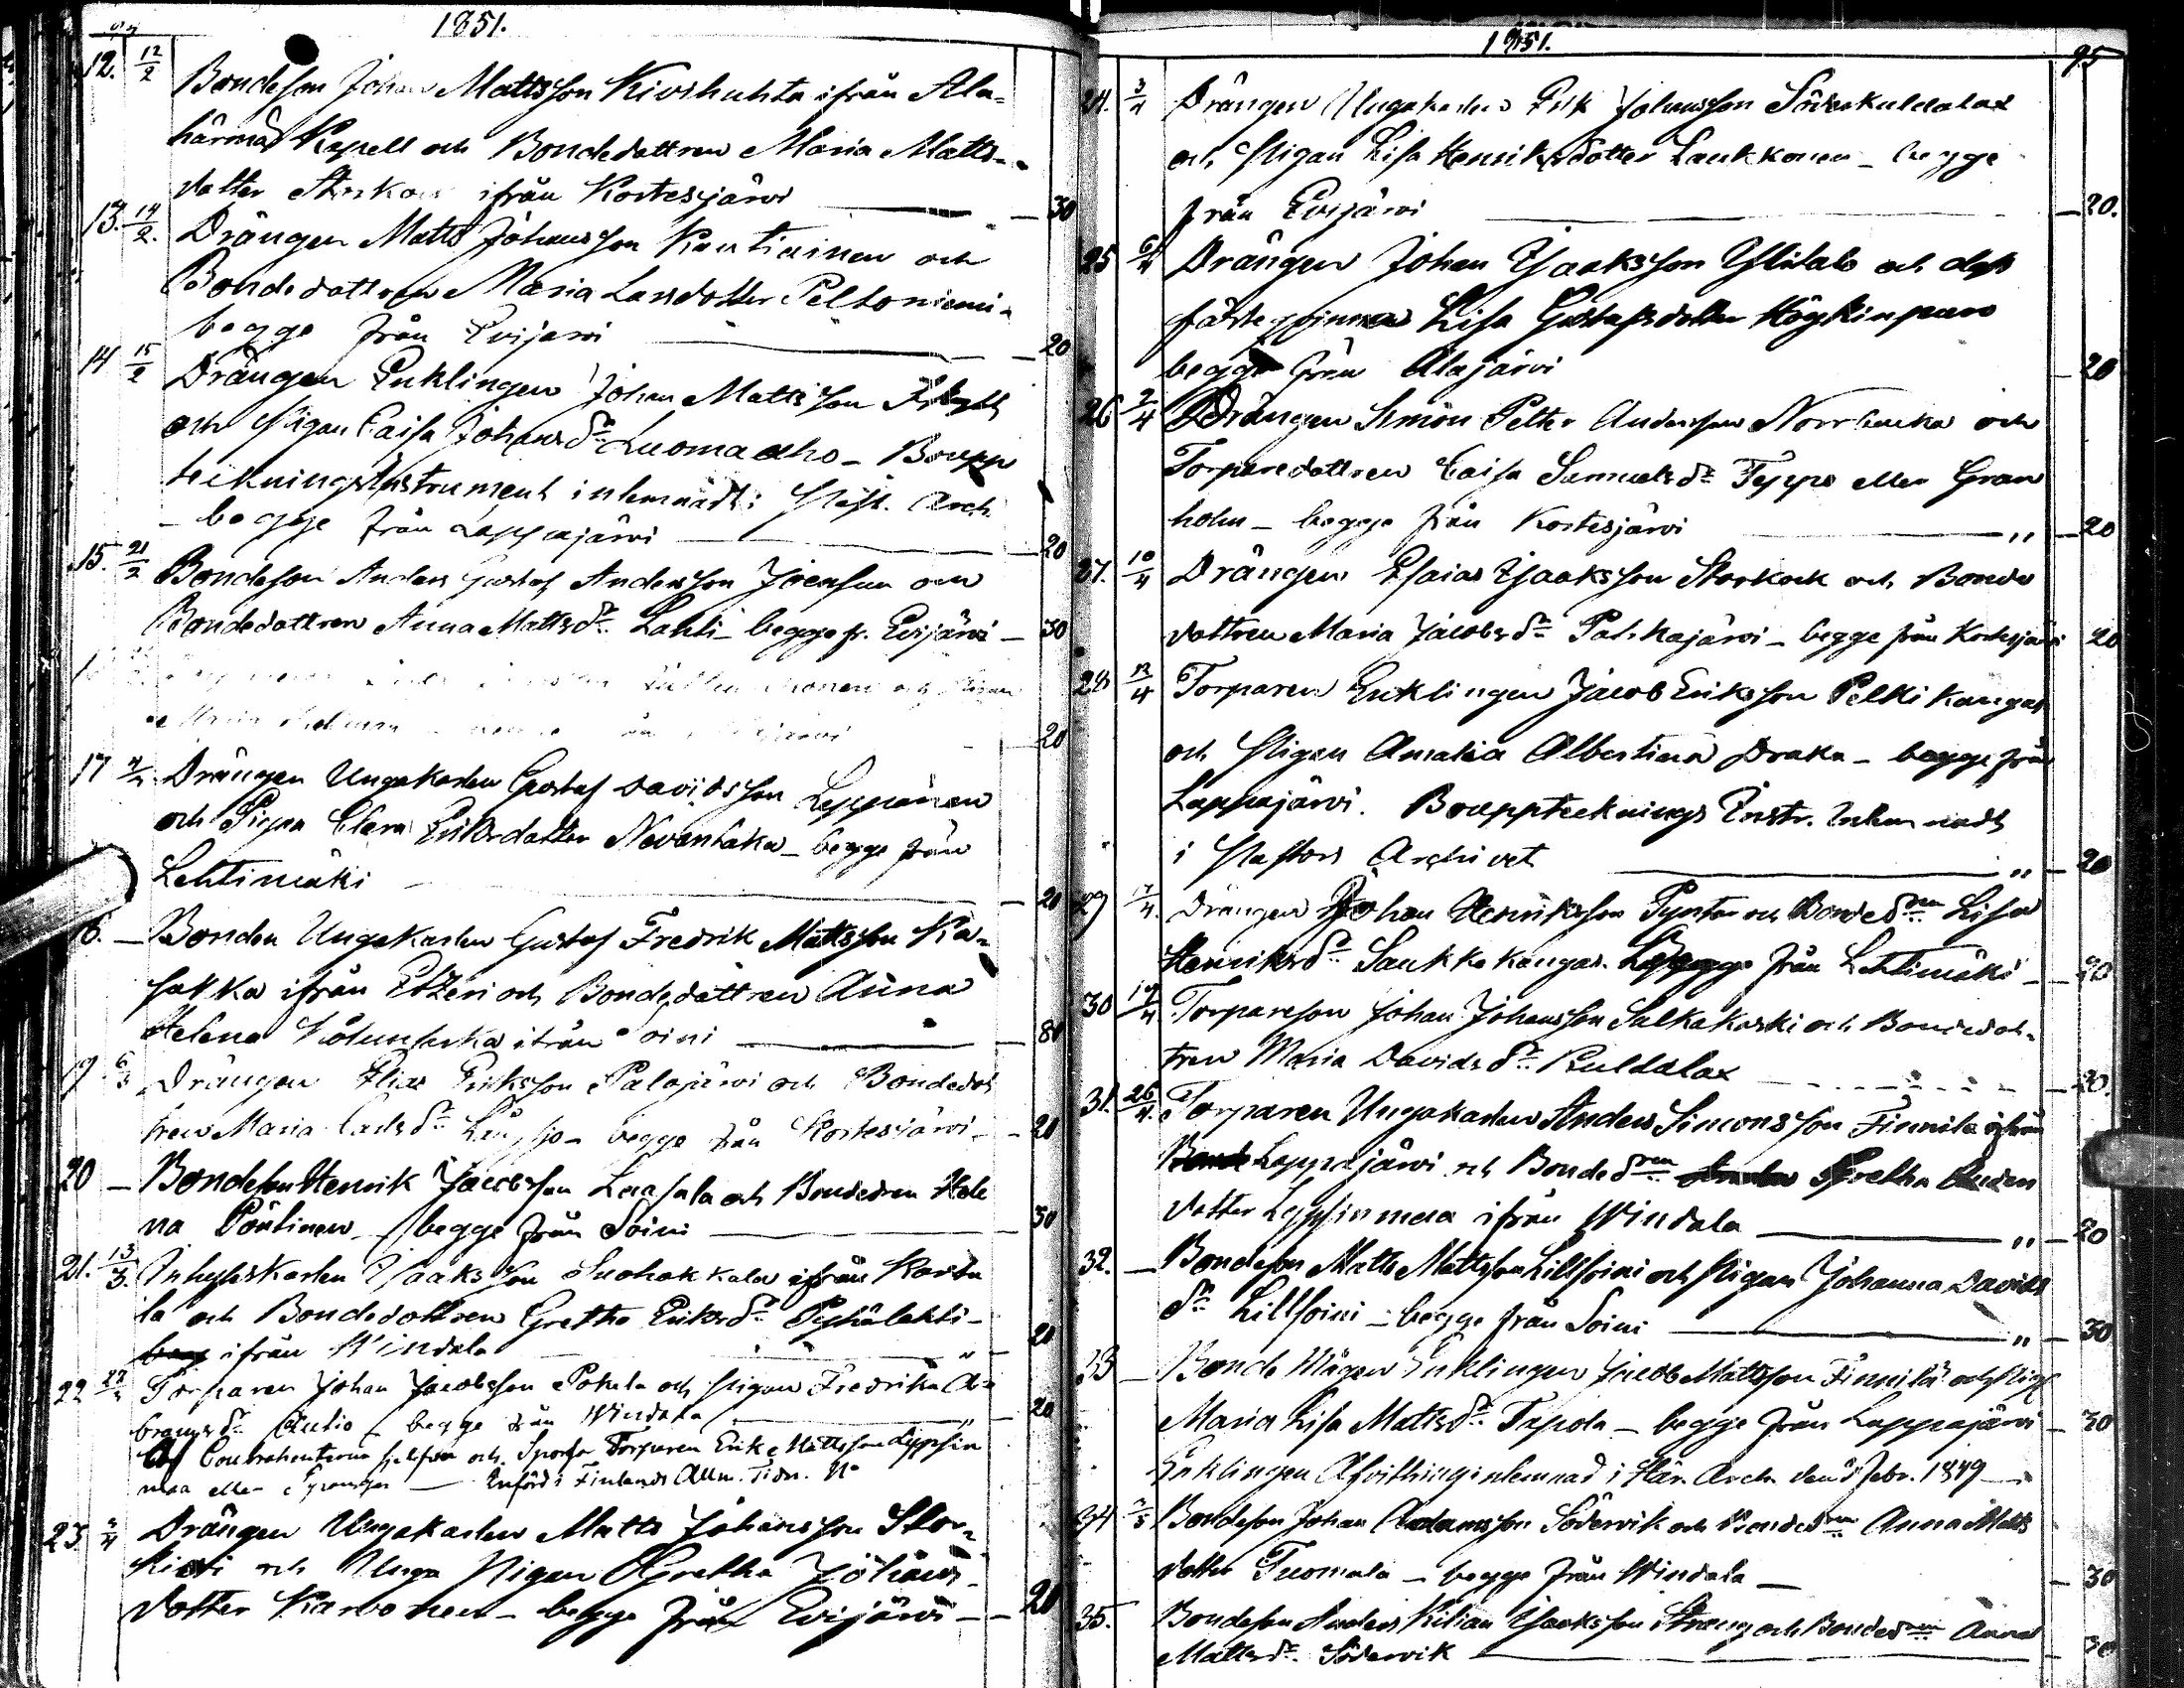 1851.
12. 12/2 Bondeson Johan Mattsson Kivihuhta ifrån Ala=
härmä Kapell och Bondedottren Maria Matts-
dotter ifrån Kortesjärvi — 30
13. 14/2. Drängen Matts Johansson Rautiainen och
Bondedottren Maria Larsdotter Peltoniemi
begge från Evijärvi — 20
14 15/2 Drängen Enklingen Johan Mattsson
och Pigan Caisa Johansdr Luomaaho – Boupp
teckningsInstrument inlemnadt i Past. Arch.
– begge från Lappajärvi — 20
15. 21/2 Bondeson Anders Gustaf Andersson Joensuu och
Bondedottren Anna Mattsdr Lahti – begge fr. Evijärvi – 30
Maria
20
17 Drängen Ungakarlen Gustaf Davidsson Leppänen
och Pigan Clara Eriksdotter Nevanhaka – begge från
Lehtimäki — 20
18. – Bonden Ungekarlen Gustaf Fredrik Mattsson Ka=
sakka ifrån Etzeri och Bondedottren Anna
Helena ifrån Soini — 80
19 6/3 Drängen Elias Eriksson Palojärvi och Bondedot
tren Maria Carlsdr Långsjo – begge från Kortesjärvi – 20
20 – Bondeson Henrik Jacobsson Laasala och Bondedren Hele
na Pöntinen – begge från Soini — 30
21. 13/3. Inhysekarlen Isaaksson Suohakkala ifrån Kaita
la och Bondedottren Gretha Eriksdr Pyhälahti –
ifrån Windala — „ – 20
22 Torparen Johan Jacobsson Pokela och Pigan Fredrika A=
bramsdr Autio – begge från Windala — „ – 20
Contrahenterna sjelfva och Torparen Erik Mattsson Leppin
maa eller — Införd i Finlands Allm. Tidn. No
23 2/4 Drängen Ungakarlen Matts Johansson Stor=
kivi och Unga Pigan Gretha Johans-
dotter Karvonen – begge från Evijärvi – 20
1851. 95
24. 3/4 Drängen Ungakarlen Erik Johansson Söderkuldalax
och Pigan Lisa Henriksdotter Laukkonen – begge
från Evijärvi — 20.
25 6/4 Drängen Johan Isaaksson Ylitalo och dess
fästeqvinna Lisa Gustafsdotter
begge från Alajärvi 20
26 7/4 Drängen Simon Petter Andersson Norrbacka och
Torparedottren Caisa Samuelsdr Teppo eller Gran
holm – begge från Kortesjärvi — „ – 20
27. 10/4 Drängen Esaias Isaaksson Storkock och Bonde
dottren Maria Jacobsdr Pahkajärvi – begge från Kortesjärvi 20
28 13/4 Torparen Enklingen Jacob Eriksson Pelkikangas
och Pigan Amalia Albertina Draka – begge från
Lappajärvi. Bouppteknings Instr. Inlemnadt
i Pastors Archivet — „ – 20
29 17/4. Drängen Johan Henriksson och Bondedren Lisa
Henriksdr Saukkokangas. begge från Lehtimäki – 20
30 19/4 Torpareson Johan Johansson Salkakoski och Bondedot=
tren Maria Davidsdr Kuldalax — 20.
31. 26/4. Torparen Ungakarlen Anders Simonsson Finnilä ifrån
Lappajärvi och Bondedren Gretha Anders
dotter Leppinmaa ifrån Windala — „ – 20
32. – Bondeson Matts Mattsson Lillsoini och Pigan Johanna Davids
dr Lillsoini – begge från Soini — „ – 30
33 – Bonde Mågen Enklingen Jacob Mattsson Finnilä och Pigan
Maria Lisa Mattsdr Tapola – begge från Lappajärvi – 30
Enklingen Afvittring inlemnad i Här. Arch. den Febr. 1849 –
34 Bondeson Johan Adamsson Södervik och Bondedren Anna Matts
dotter Tuomala – begge från Windala — 30
35. Bondeson Anders Kilian Isaaksson Streng och Bondedren Anna
Mattsdr Södervik — 30